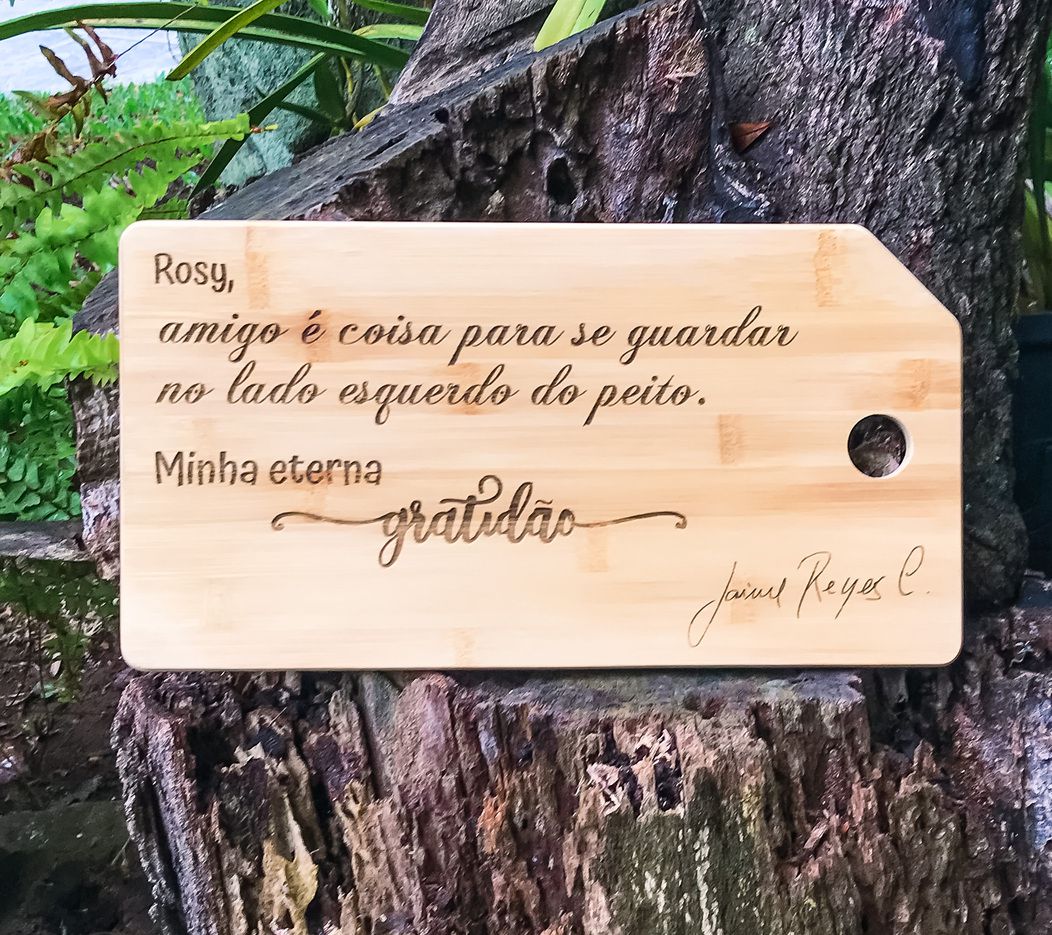 Rosy,
amigo é coisa para se guardar
no lado esquerdo do peito.
Minha eterna
gratidão
Jaime Reyes C.